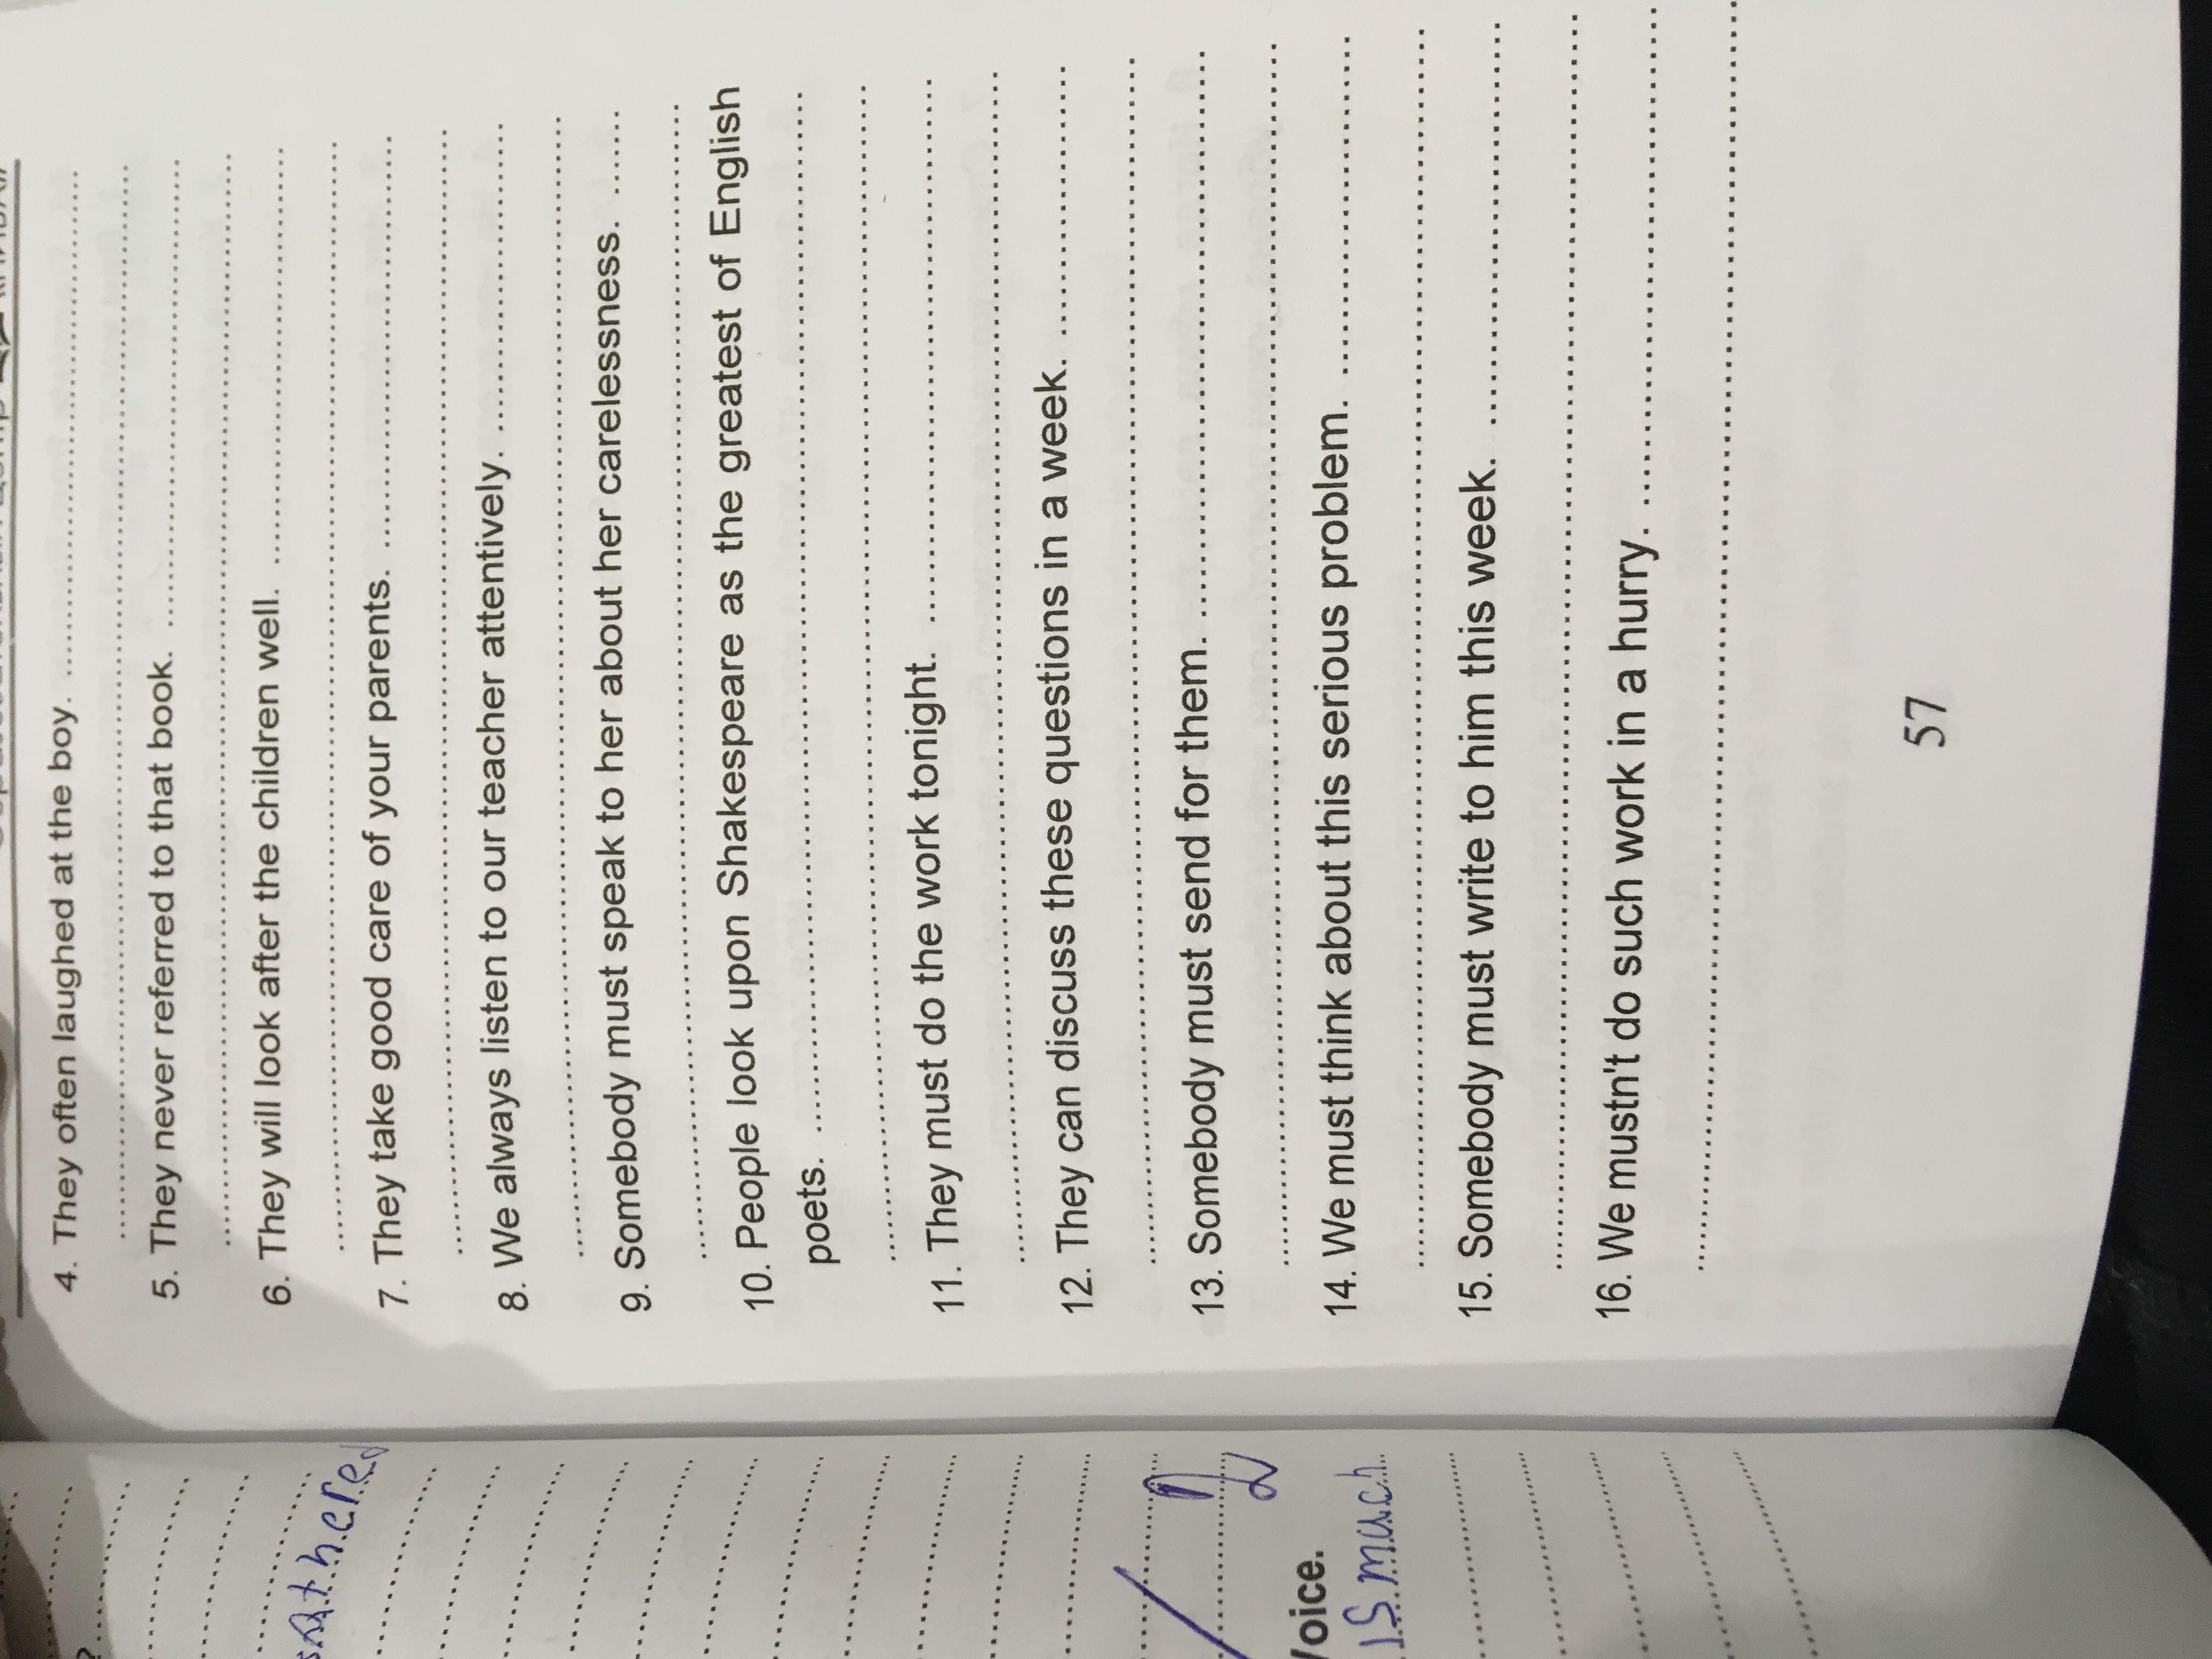 4. They often laughed at the boy. ........................
........................
5. They never referred to that book. ........................
........................
6. They will look after the children well. ........................
........................
7. They take good care of your parents. ........................
........................
8. We always listen to our teacher attentively. ........................
........................
9. Somebody must speak to her about her carelessness. ......
........................
10. People look upon Shakespeare as the greatest of English
poets. ........................
........................
11. They must do the work tonight. ........................
........................
12. They can discuss these questions in a week. ........................
........................
13. Somebody must send for them. ........................
........................
14. We must think about this serious problem. ........................
........................
15. Somebody must write to him this week. ........................
........................
16. We mustn't do such work in a hurry. ........................
........................
57
oice.
is much